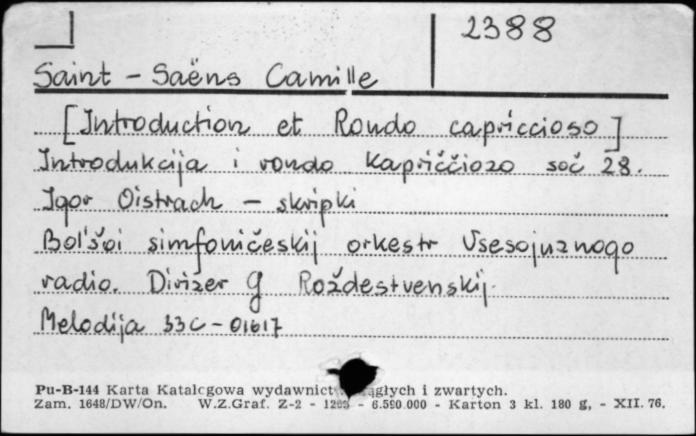 2388
Saint - Saëns Camille
[Introduction et Rondo capriccioso]
Introdukcija i rondo kapriččiozo soč 28.
Igor Oistrach - skripki
Bol'šoi simfoničeskij orkestr Vsesojuznogo
radio. Dirižer G Roždestvenskij.
Melodija 33C-01617
Pu-B-144 Karta Katalogowa wydawnictw ciągłych i zwartych.
Zam. 1648/DW/On. W.Z.Graf. Z-2 - 6.590.000 - Karton 3 kl. 180 g, - XII. 76.